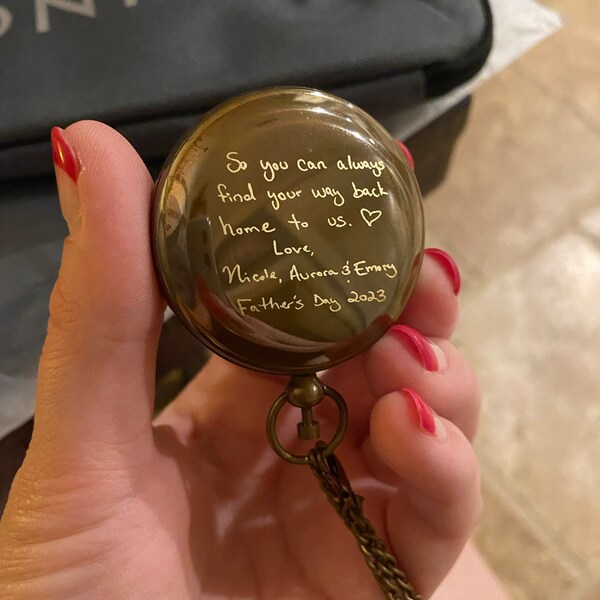 So you can always
find your way back
home to us. ♡
Love,
Nicole, Aurora & Emory
Father's Day 2023